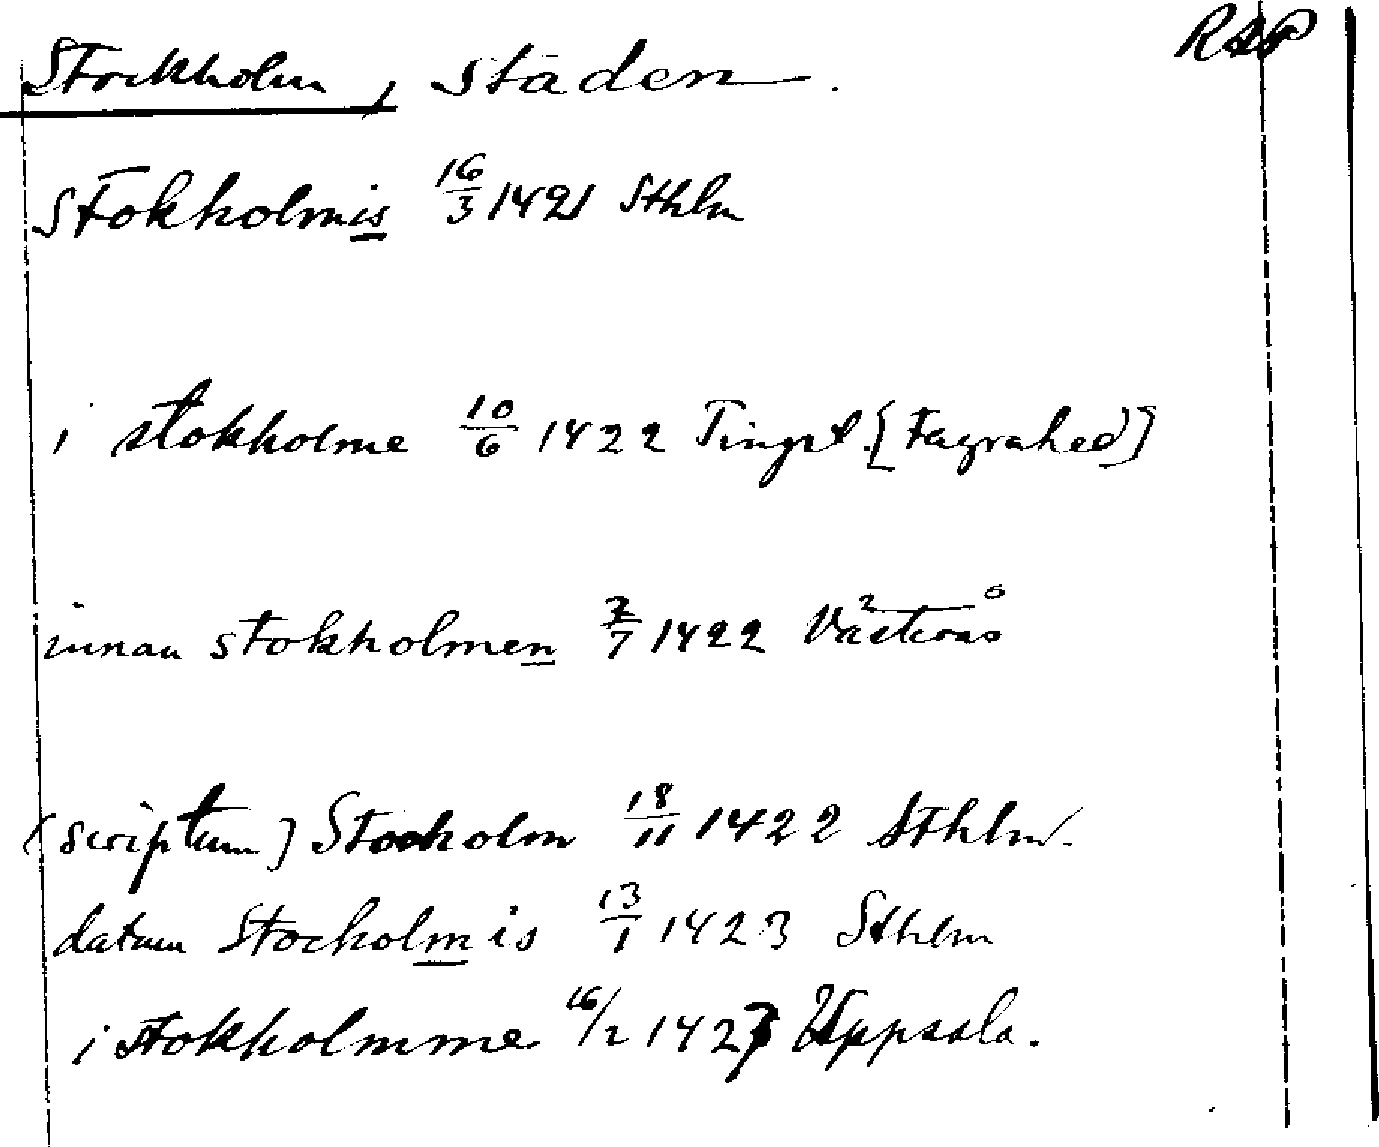 RAP
Stockholm, staden.
Stokholmis 16/3 1421 Sthlm
i stokholme 10/6 1422 Tingst. [Fagrahed]
innan stokholmen 2/7 1422 Västerås
(scriptum) Stocholm 18/11 1422 Sthlm.
datum Stocholmis 13/1 1423 Sthlm
i stokholmme 16/2 1423 Uppsala.